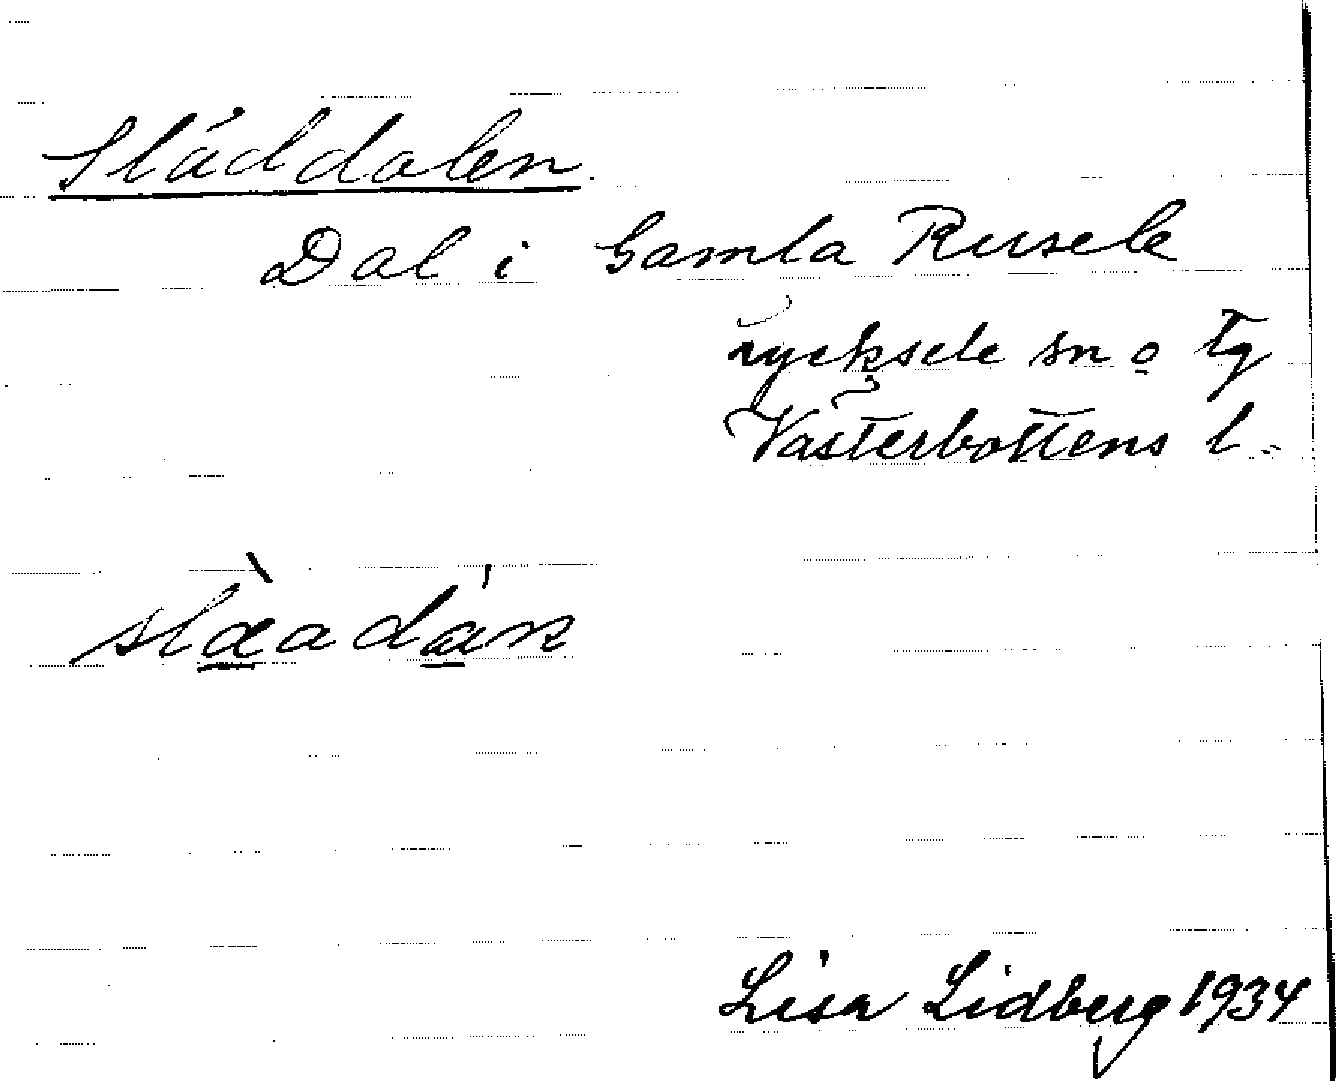 Släddalen.
Dal i Gamla Rusele
Lycksele sn o tg
Västerbottens l.
Lisa Lidberg 1934